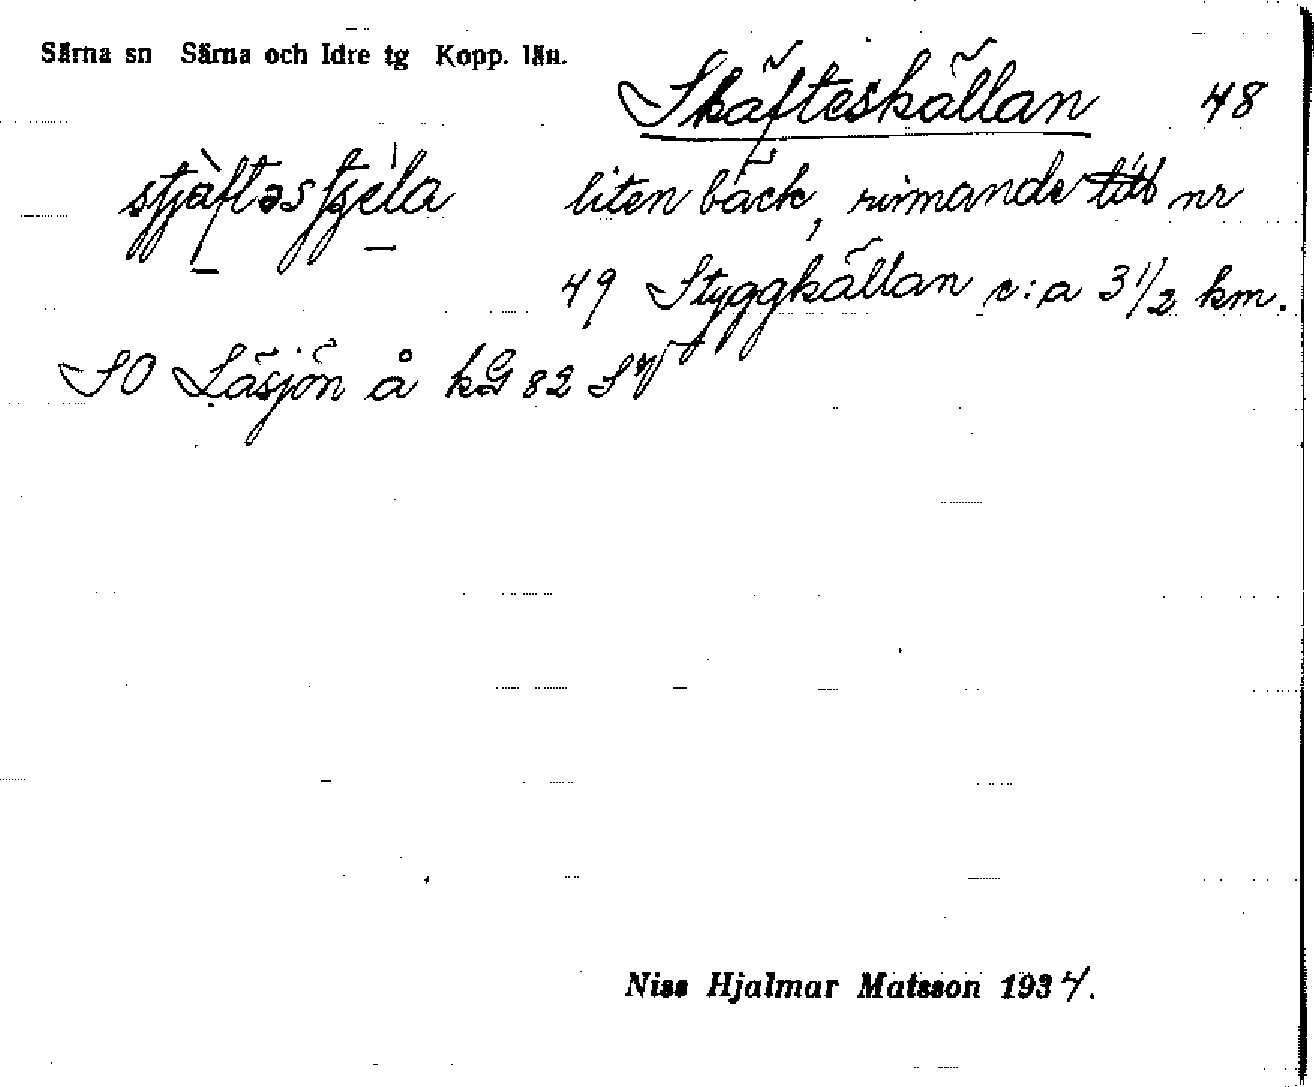 Särna sn Särna och Idre tg Kopp. län.
Skäfteskällan 48
liten bäck, rinnande till nr
49 Styggkällan c:a 3 1/2 km.
SO Läsjön å kG 82 SV
Niss Hjalmar Matsson 1934.